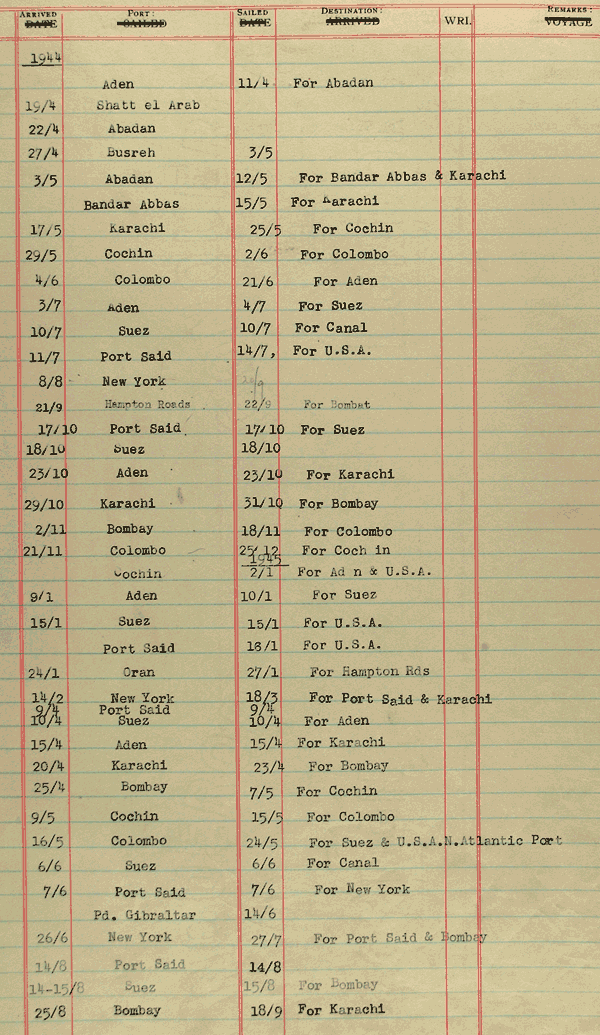 ARRIVED PORT: SAILED DESTINATION: REMARKS:
DATE SAILED DATE ARRIVED WRI. VOYAGE
1944
Aden 11/4 For Abadan
19/4 Shatt el Arab
22/4 Abadan
27/4 Busreh 3/5
3/5 Abadan 12/5 For Bandar Abbas & Karachi
Bandar Abbas 15/5 For Karachi
17/5 Karachi 25/5 For Cochin
29/5 Cochin 2/6 For Colombo
4/6 Colombo 21/6 For Aden
3/7 Aden 4/7 For Suez
10/7 Suez 10/7 For Canal
11/7 Port Said 14/7, For U.S.A.
8/8 New York
21/9 Hampton Roads 22/9 For Bombat
17/10 Port Said 17/10 For Suez
18/10 Suez 18/10
23/10 Aden 23/10 For Karachi
29/10 Karachi 31/10 For Bombay
2/11 Bombay 18/11 For Colombo
21/11 Colombo 25/12 For Coch in
1945
Cochin 2/1 For Ad n & U.S.A.
9/1 Aden 10/1 For Suez
15/1 Suez 15/1 For U.S.A.
Port Said 16/1 For U.S.A.
24/1 Oran 27/1 For Hampton Rds
14/2 New York 18/3 For Port Said & Karachi
9/4 Port Said 9/4
10/4 Suez 10/4 For Aden
15/4 Aden 15/4 For Karachi
20/4 Karachi 23/4 For Bombay
25/4 Bombay 7/5 For Cochin
9/5 Cochin 15/5 For Colombo
16/5 Colombo 24/5 For Suez & U.S.A.N.Atlantic Port
6/6 Suez 6/6 For Canal
7/6 Port Said 7/6 For New York
Pd. Gibraltar 14/6
26/6 New York 27/7 For Port Said & Bombay
14/8 Port Said 14/8
14-15/8 Suez 15/8 For Bombay
25/8 Bombay 18/9 For Karachi